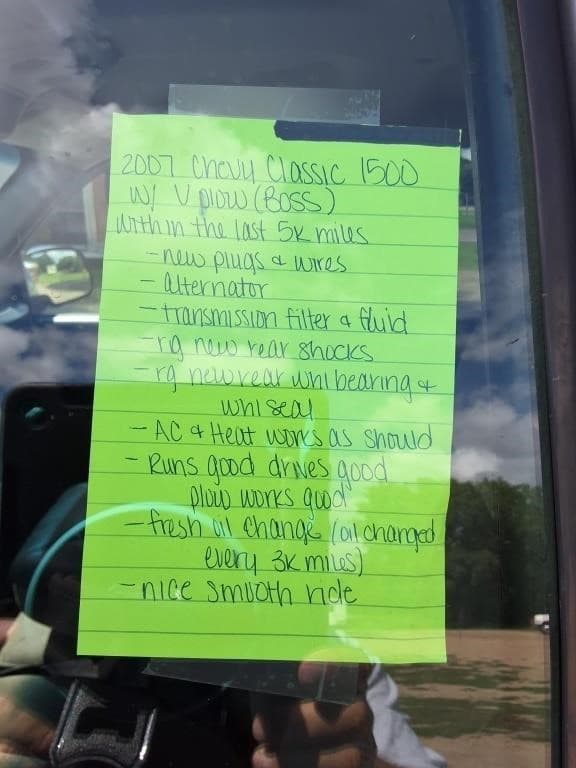 2007 Chevy Classic 1500
W/ V plow (BOSS)
Within the last 5k miles
- new plugs & wires
- alternator
- transmission filter & fluid
- rg new rear shocks
- rg new rear whl bearing &
whl seal
- AC & Heat works as should
- Runs good drives good
plow works good
- fresh oil change (oil changed
every 3k miles)
- nice smooth ride